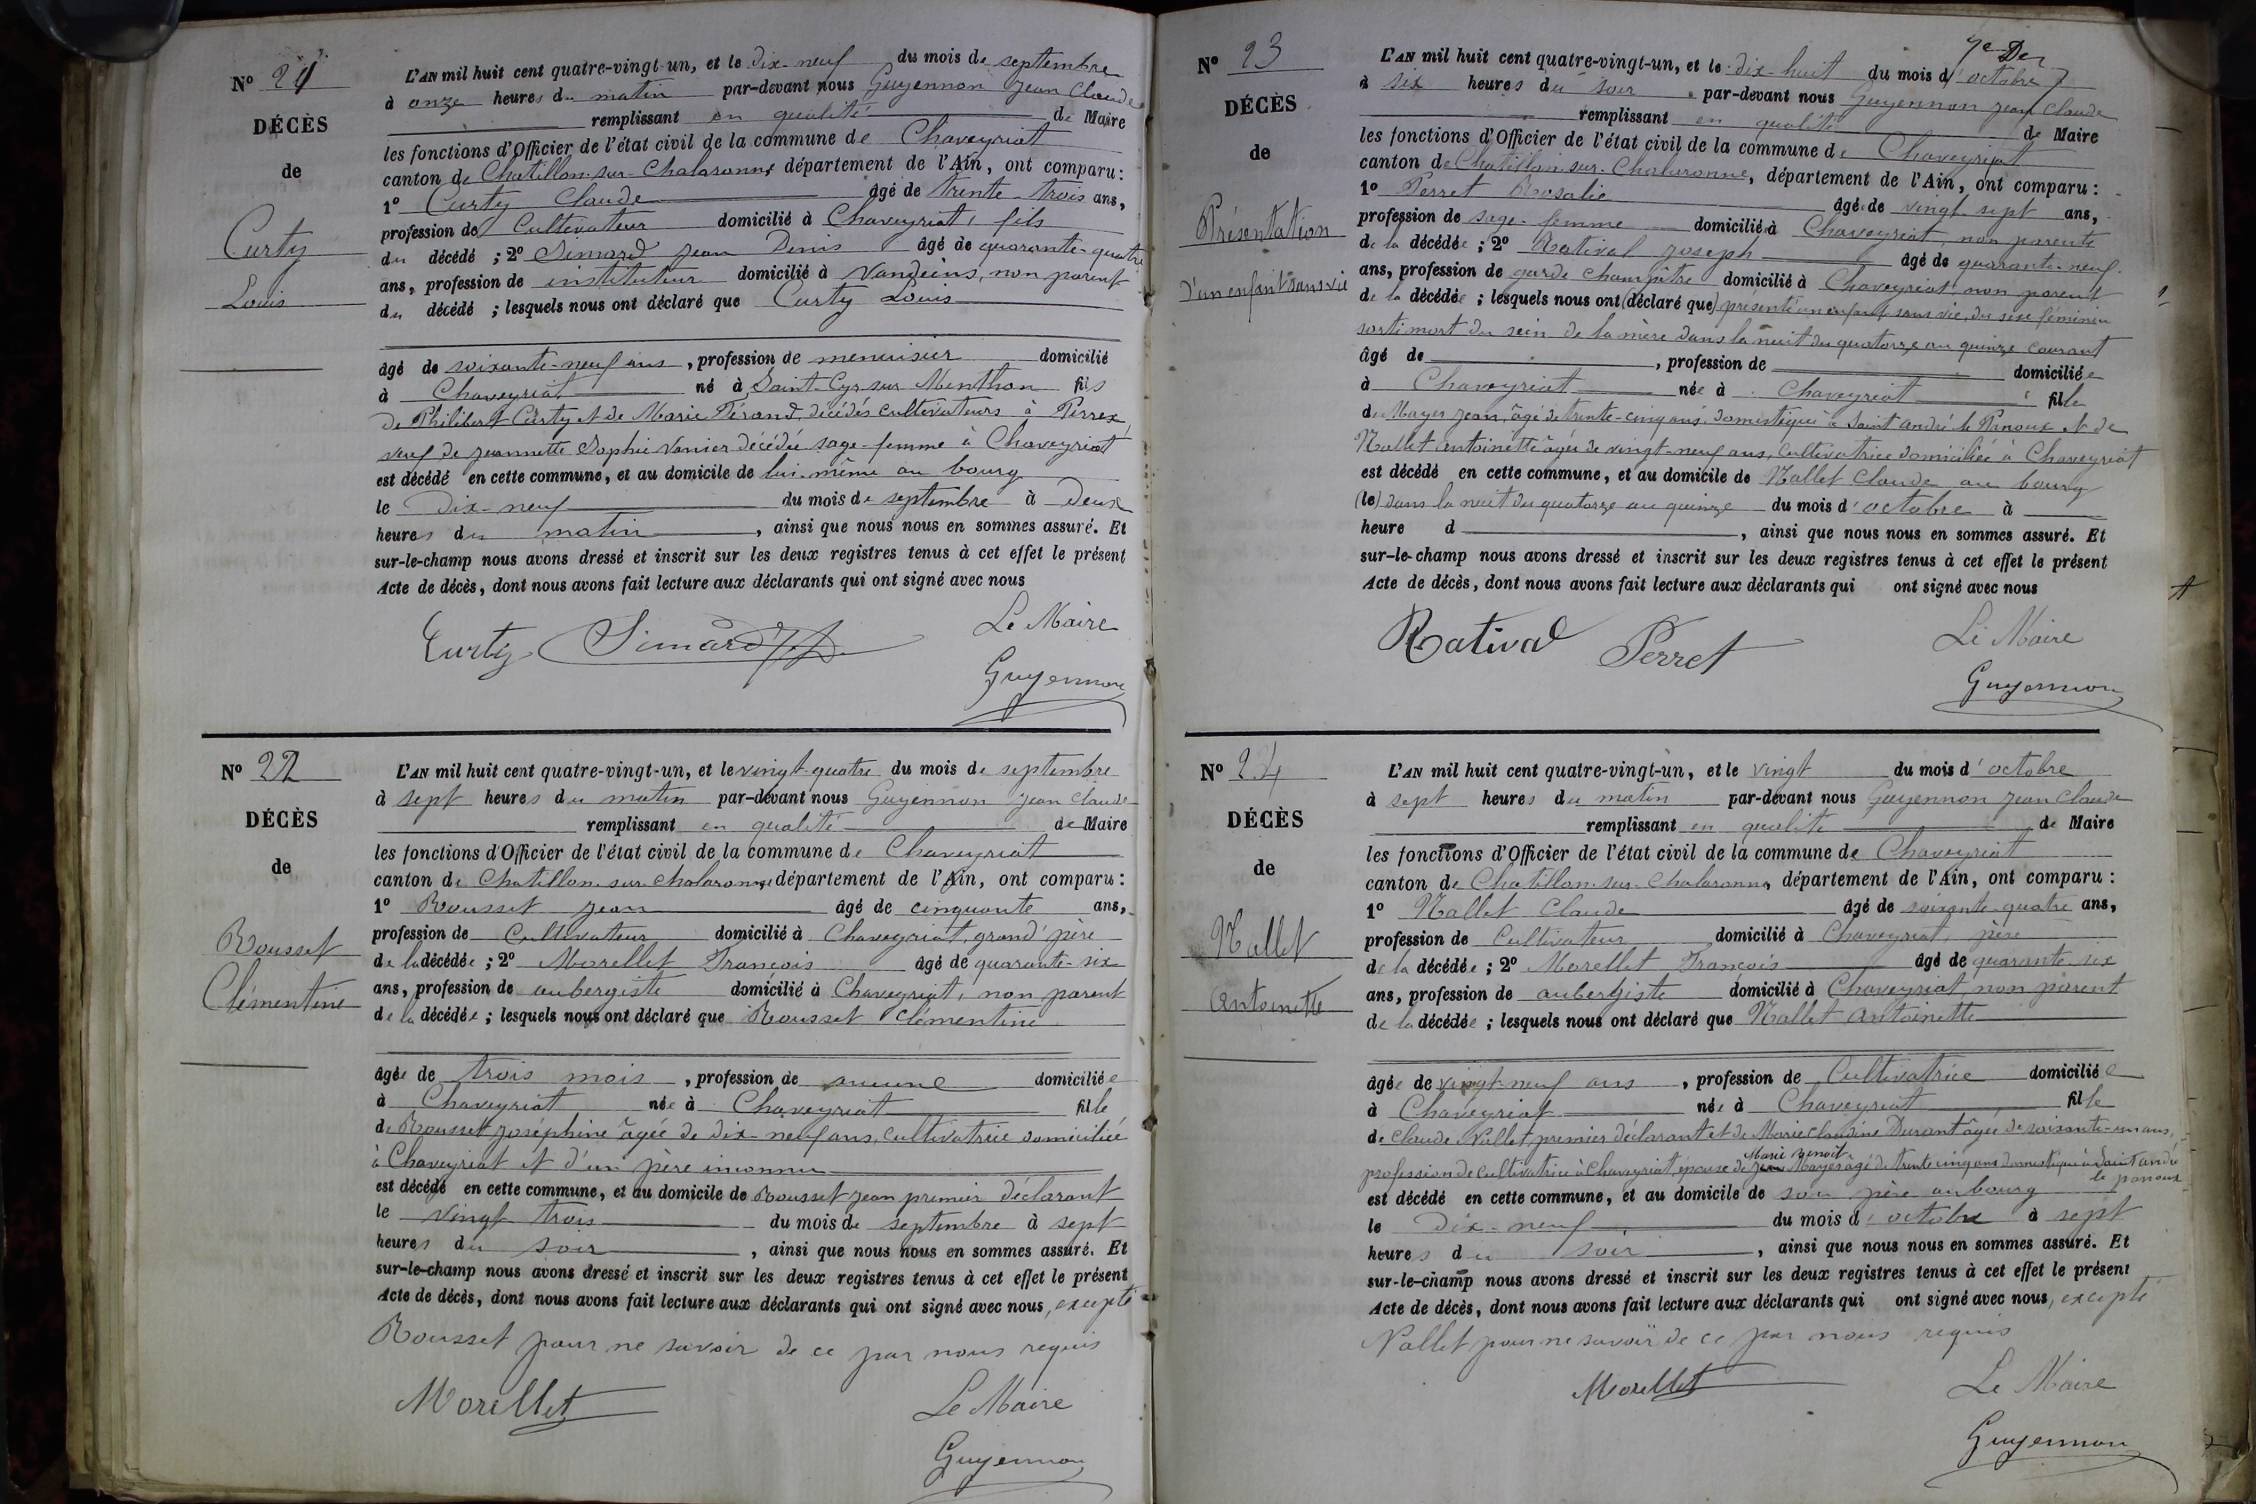 N° 21
DÉCÈS
de
Curty
Louis
L'AN mil huit cent quatre-vingt-un, et le dix-neuf du mois de septembre
à onze heures du matin par-devant nous Guyennon Jean Claude
remplissant en qualité de Maire
les fonctions d'Officier de l'état civil de la commune de Chaveyriat
canton de Chatillon-sur-Chalaronne, département de l'Ain, ont comparu :
1° Curty Claude âgé de trente-trois ans,
profession de Cultivateur domicilié à Chaveyriat, fils
du décédé ; 2° Simard Jean Denis âgé de quarante-quatre
ans, profession de instituteur domicilié à Vandeins, non parent
du décédé ; lesquels nous ont déclaré que Curty Louis
âgé de soixante-neuf ans, profession de menuisier domicilié
à Chaveyriat né à Saint-Cyr-sur-Menthon fils
de Philibert Curty et de Marie Férand, décédés cultivateurs à Perrex,
veuf de Jeannette Sophie Vanier décédée sage-femme à Chaveyriat
est décédé en cette commune, et au domicile de lui-même au bourg
le Dix-neuf du mois de septembre à Deux
heures du matin, ainsi que nous nous en sommes assuré. Et
sur-le-champ nous avons dressé et inscrit sur les deux registres tenus à cet effet le présent
Acte de décès, dont nous avons fait lecture aux déclarants qui ont signé avec nous
Curty Simard J D Le Maire
Guyennon
N° 22
DÉCÈS
de
Rousset
Clémentine
L'AN mil huit cent quatre-vingt-un, et le vingt-quatre du mois de septembre
à sept heures du matin par-devant nous Guyennon Jean Claude
remplissant en qualité de Maire
les fonctions d'Officier de l'état civil de la commune de Chaveyriat
canton de Chatillon-sur-Chalaronne, département de l'Ain, ont comparu :
1° Rousset Jean âgé de cinquante ans,
profession de Cultivateur domicilié à Chaveyriat, grand'père
de la décédée ; 2° Morellet François âgé de quarante-six
ans, profession de aubergiste domicilié à Chaveyriat, non parent
de la décédée ; lesquels nous ont déclaré que Rousset Clémentine
âgée de trois mois, profession de aucune domiciliée
à Chaveyriat née à Chaveyriat fille
de Rousset Joséphine âgée de dix-neuf ans, cultivatrice domiciliée
à Chaveyriat et d'un père inconnu
est décédé en cette commune, et au domicile de Rousset Jean premier déclarant
le vingt trois du mois de septembre à sept
heures du soir, ainsi que nous nous en sommes assuré. Et
sur-le-champ nous avons dressé et inscrit sur les deux registres tenus à cet effet le présent
Acte de décès, dont nous avons fait lecture aux déclarants qui ont signé avec nous, excepté
Rousset pour ne savoir de ce par nous requis
Morellet Le Maire
Guyennon
7e Der
N° 23
DÉCÈS
de
Présentation
d'un enfant sans vie
L'AN mil huit cent quatre-vingt-un, et le dix-huit du mois d'octobre
à six heures du soir par-devant nous Guyennon Jean Claude
remplissant en qualité de Maire
les fonctions d'Officier de l'état civil de la commune de Chaveyriat
canton de Chatillon-sur-Chalaronne, département de l'Ain, ont comparu :
1° Perret Rosalie âgée de vingt-sept ans,
profession de sage-femme domiciliée à Chaveyriat, non parente
de la décédée ; 2° Ratival Joseph âgé de quarante-neuf
ans, profession de garde champêtre domicilié à Chaveyriat, non parent
de la décédée ; lesquels nous ont (déclaré que) présenté un enfant sans vie, du sexe féminin
sorti mort du sein de la mère dans la nuit du quatorze au quinze courant
âgé de , profession de domiciliée
à Chaveyriat née à Chaveyriat fille
de Mayer Jean, âgé de trente-cinq ans, domestique à Saint André le Panoux et de
Nallet Antoinette âgée de vingt-neuf ans, Cultivatrice domiciliée à Chaveyriat
est décédé en cette commune, et au domicile de Nallet Claude au bourg
(le) dans la nuit du quatorze au quinze du mois d'octobre à
heure d , ainsi que nous nous en sommes assuré. Et
sur-le-champ nous avons dressé et inscrit sur les deux registres tenus à cet effet le présent
Acte de décès, dont nous avons fait lecture aux déclarants qui ont signé avec nous
Ratival Perret Le Maire
Guyennon
N° 24
DÉCÈS
de
Nallet
Antoinette
L'AN mil huit cent quatre-vingt-un, et le vingt du mois d'octobre
à sept heures du matin par-devant nous Guyennon Jean Claude
remplissant en qualité de Maire
les fonctions d'Officier de l'état civil de la commune de Chaveyriat
canton de Chatillon-sur-Chalaronne, département de l'Ain, ont comparu :
1° Nallet Claude âgé de soixante-quatre ans,
profession de Cultivateur domicilié à Chaveyriat, père
de la décédée ; 2° Morellet François âgé de quarante-six
ans, profession de aubergiste domicilié à Chaveyriat, non parent
de la décédée ; lesquels nous ont déclaré que Nallet Antoinette
âgée de vingt-neuf ans, profession de Cultivatrice domiciliée
à Chaveyriat née à Chaveyriat fille
de Claude Nallet, premier déclarant et de Marie Claudine Durant âgée de soixante-un ans,
Marie Benoit
profession de cultivatrice à Chaveyriat, épouse de Jean Mayer âgé de trente cinq ans domestique à Saint André
le panoux
est décédé en cette commune, et au domicile de son père au bourg
le Dix-neuf du mois d'octobre à sept
heures du soir, ainsi que nous nous en sommes assuré. Et
sur-le-champ nous avons dressé et inscrit sur les deux registres tenus à cet effet le présent
Acte de décès, dont nous avons fait lecture aux déclarants qui ont signé avec nous, excepté
Nallet pour ne savoir de ce par nous requis
Morellet Le Maire
Guyennon